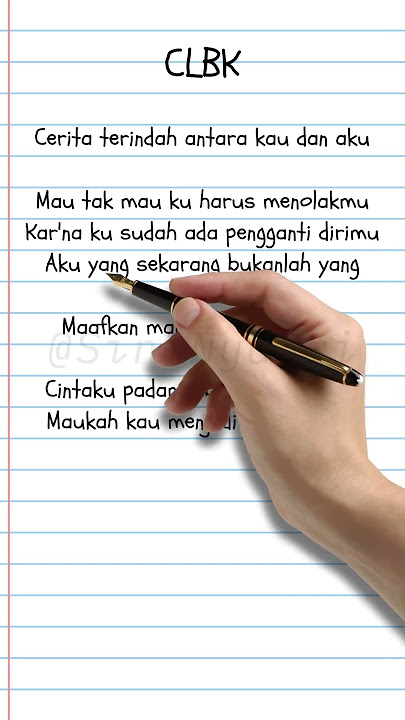 CLBK
Cerita terindah antara kau dan aku
Mau tak mau ku harus menolakmu
Kar'na ku sudah ada pengganti dirimu
Aku yang sekarang bukanlah yang
Maafkan
Cintaku
Maukah kau